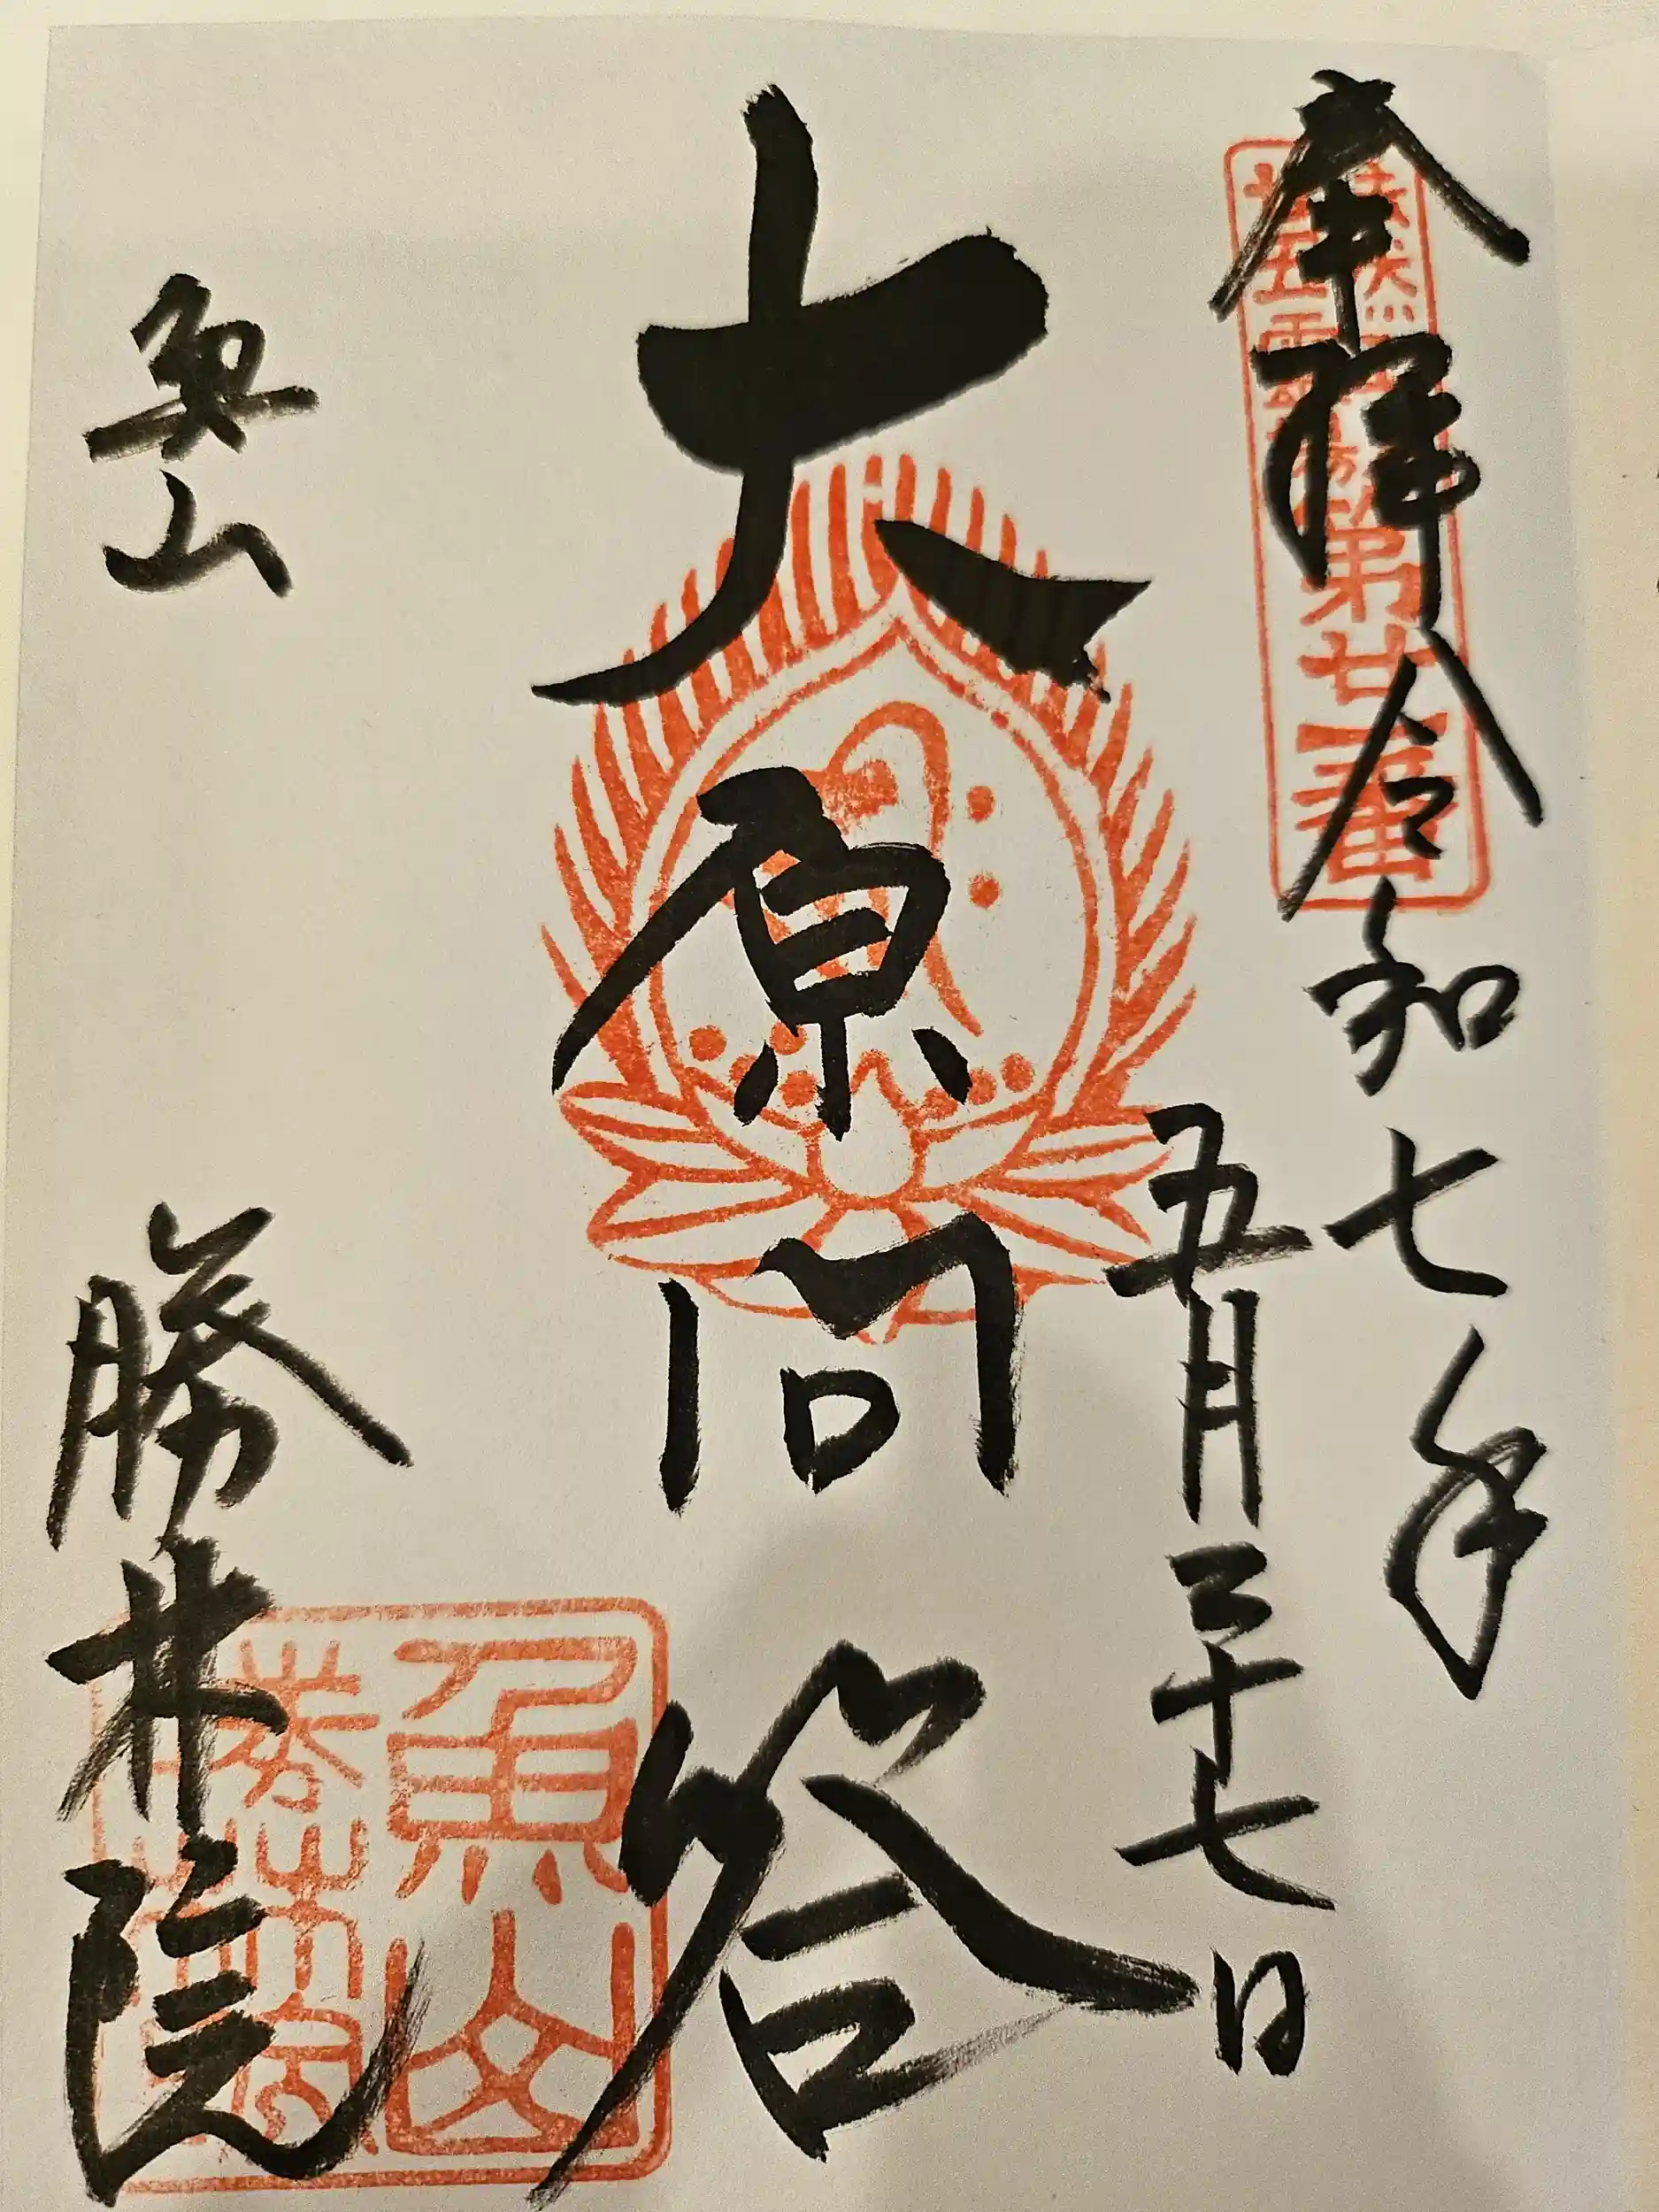 第廿一番
奉拝 令和七年
五月二十七日
大原問答
魚山 勝林院
魚山